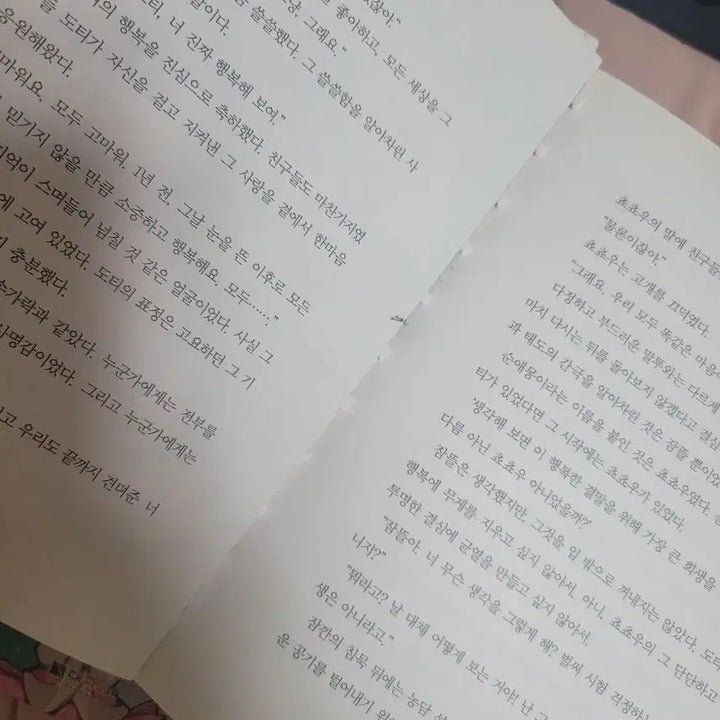 좋아하고, 모든 세상을 그
그래요."
씁쓸했다. 그 씁쓸함을 알아차린 사
람이다.
너 진짜 행복해 보여."
의 행복을 진심으로 축하했다. 친구들도 마찬가지였
도티가 자신을 걸고 지켜낸 그 사랑을 곁에서 한마음
응원해왔다.
모두 고마워. 1년 전, 그날 눈을 뜬 이후로 모든
믿기지 않을 만큼 소중하고 행복해요. 모두……."
스며들어 넘칠 것 같은 얼굴이었다. 사실 그
에 고여 있었다. 도티의 표정은 고요하던 그 기
충분했다.
손가락과 같았다. 누군가에게는 전부를
사명감이었다. 그리고 누군가에게는
우리도 끝까지 견뎌준 너
쵸쵸우의 말에 친구들
"물론이잖아."
쵸쵸우는 고개를 끄덕였다.
"그래요. 우리 모두 똑같은 마음
다정하고 부드러운 말투와는 다르게
마치 다시는 뒤를 돌아보지 않겠다고 결심
과 태도의 간극을 알아차린 것은 잠뜰 뿐이었
순애몽이라는 이름을 붙인 것은 쵸쵸우였다.
티가 있었다면 그 시작에는 쵸쵸우가 있었다.
'생각해 보면 이 행복한 결말을 위해 가장 큰 희생을
다름 아닌 쵸쵸우 아니었을까?'
잠뜰은 생각했지만, 그것을 입 밖으로 꺼내지는 않았다.
행복에 무게를 지우고 싶지 않아서. 아니, 쵸쵸우의 그 단단하고
투명한 결심에 균열을 만들고 싶지 않아서.
"잠뜰아. 너 무슨 생각을 그렇게 해? 벌써 시험 걱정하
니지?"
"뭐라고? 날 대체 어떻게 보는 거야! 난
생은 아니라고."
잠깐의 침묵 뒤에는 농담
운 공기를 털어내기